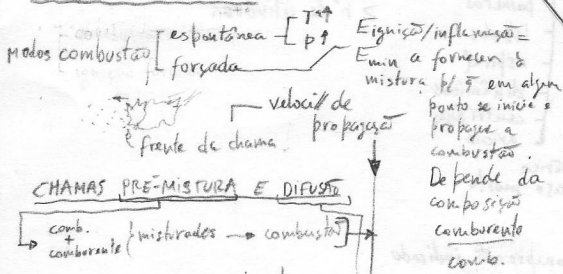 Modos combustão
espontânea
T↑
p↑
forçada
Eignição/inflamação =
Emin a fornecer à
mistura p/ q em algum
ponto se inicie e
propague a
combustão.
Depende da
composição
comburente
comb.
velocid/ de
propagação
frente da chama.
CHAMAS PRÉ-MISTURA E DIFUSÃO
comb.
+
comburente
misturados → combustão